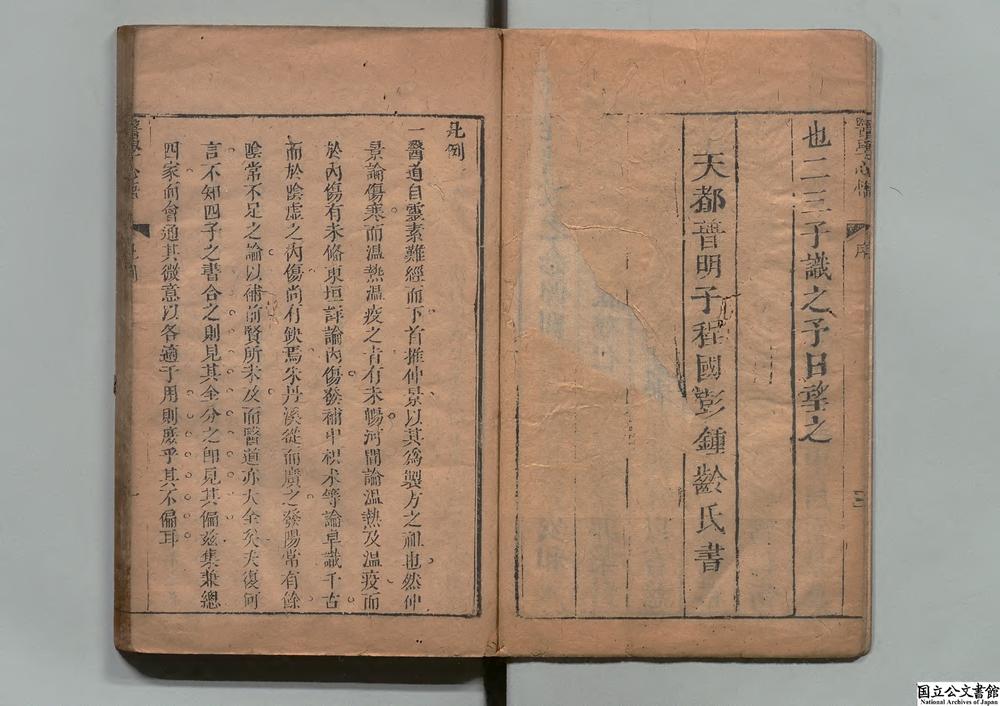 也二三子識之予日望之
天都普明子程國彭鍾齡氏書
醫學心悟
序
三
凡例
一醫道自靈素難經而下首推仲景以其為製方之祖也然仲
景論傷寒而溫熱溫疫之旨有未暢河間論溫熱及溫疫而
於內傷有未備東垣詳論內傷發補中枳朮等論卓識千古
而於陰虛之內傷尚有缺焉朱丹溪從而廣之發陽常有餘
陰常不足之論以補前賢所未及而醫道亦大全矣夫復何
言不知四子之書合之則見其全分之卽見其偏兹集兼總
四家而會通其微意以各適于用則庶乎其不偏耳
醫學心悟
凡例
一
国立公文書館
National Archives of Japan